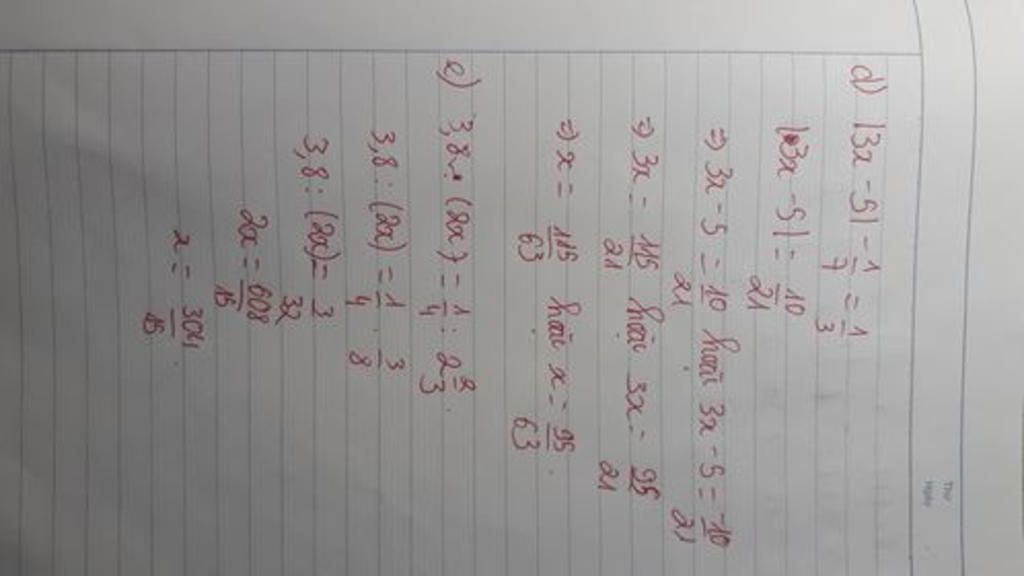 d) |3x - 5| - 1/7 = 1/3
|3x - 5| = 10/21
=> 3x - 5 = 10/21 hoặc 3x - 5 = -10/21
=> 3x = 115/21 hoặc 3x = 95/21
=> x = 115/63 hoặc x = 95/63.
e) 3,8 : (2x) = 1/4 : 2 2/3.
3,8 : (2x) = 1/4 . 3/8
3,8 : (2x) = 3/32
2x = 608/15
x = 304/15.
Thứ
Ngày